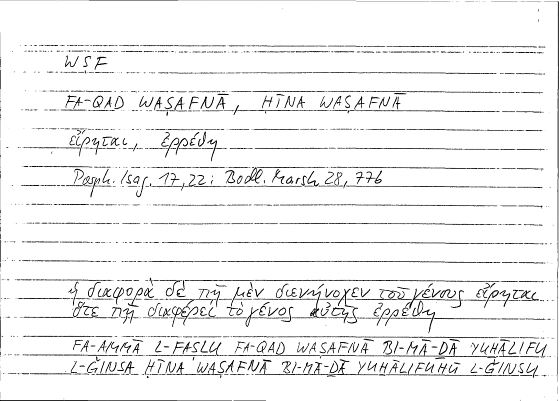 WSF
FA-QAD WAṢAFNĀ, ḤĪNA WAṢAFNĀ
εἴρηται, ἐρρέθη
Porph. Isag. 17,22: Bodl. Marsh 28, 77b
ἡ διαφορὰ δὲ πῇ μὲν διενήνοχεν τοῦ γένους εἴρηται
ὅτε πῇ διαφέρει τὸ γένος αὐτῆς ἐρρέθη
FA-AMMĀ L-FAṢLU FA-QAD WAṢAFNĀ BI-MĀ-ḎĀ YUḪĀLIFU
L-ǦINSA ḤĪNA WAṢAFNĀ BI-MĀ-ḎĀ YUḪĀLIFUHŪ L-ǦINSU